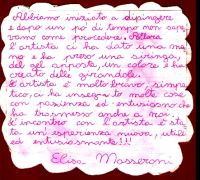 Abbiamo iniziato a dipingere
e dopo un pò di tempo non sape
vamo come procedere. Allora
l'artista ci ha dato una ma
no e ha preso una siringa,
del gel apposta, un colore e ha
creato delle girandole.
L'artista è molto bravo, simpa
tico, ci ha insegnato molte cose
con pazienza ed entusiasmo che
ha trasmesso anche a noi.
L'incontro con l'artista è sta
ta un'esperienza nuova, utile
ed entusiasmante!!!
Elisa Masseroni